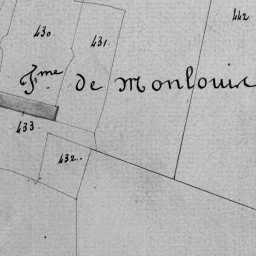 430
431.
442
Fme de Monlouis
433.
432.